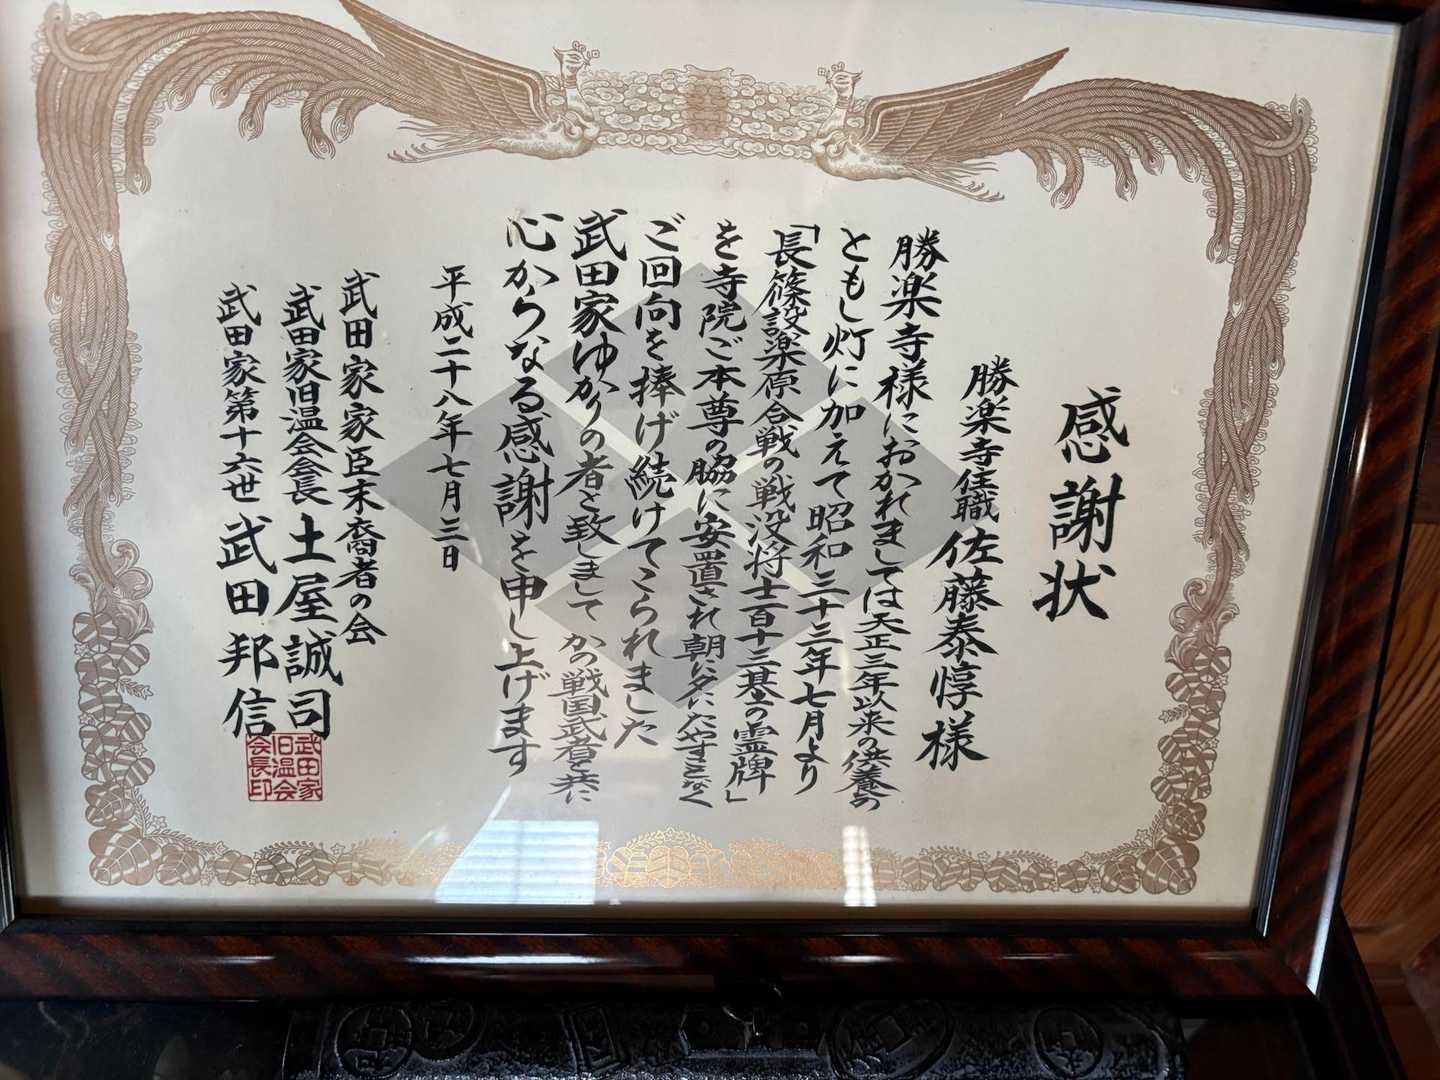 感謝状
勝楽寺住職 佐藤泰惇様
勝楽寺様におかれましては天正三年以来の供養の
ともし灯に加えて昭和三十三年七月より
「長篠設楽原合戦の戦没将士百十三基の霊牌」
を寺院ご本尊の脇に安置され朝に夕にたやすことなく
ご回向を捧げ続けてこられました
武田家ゆかりの者と致しまして かの戦国武者と共に
心からなる感謝を申し上げます
平成二十八年七月三日
武田家家臣末裔者の会
武田家旧温会会長 土屋誠司
武田家第十六世 武田邦信
武田家
旧温会
会長印